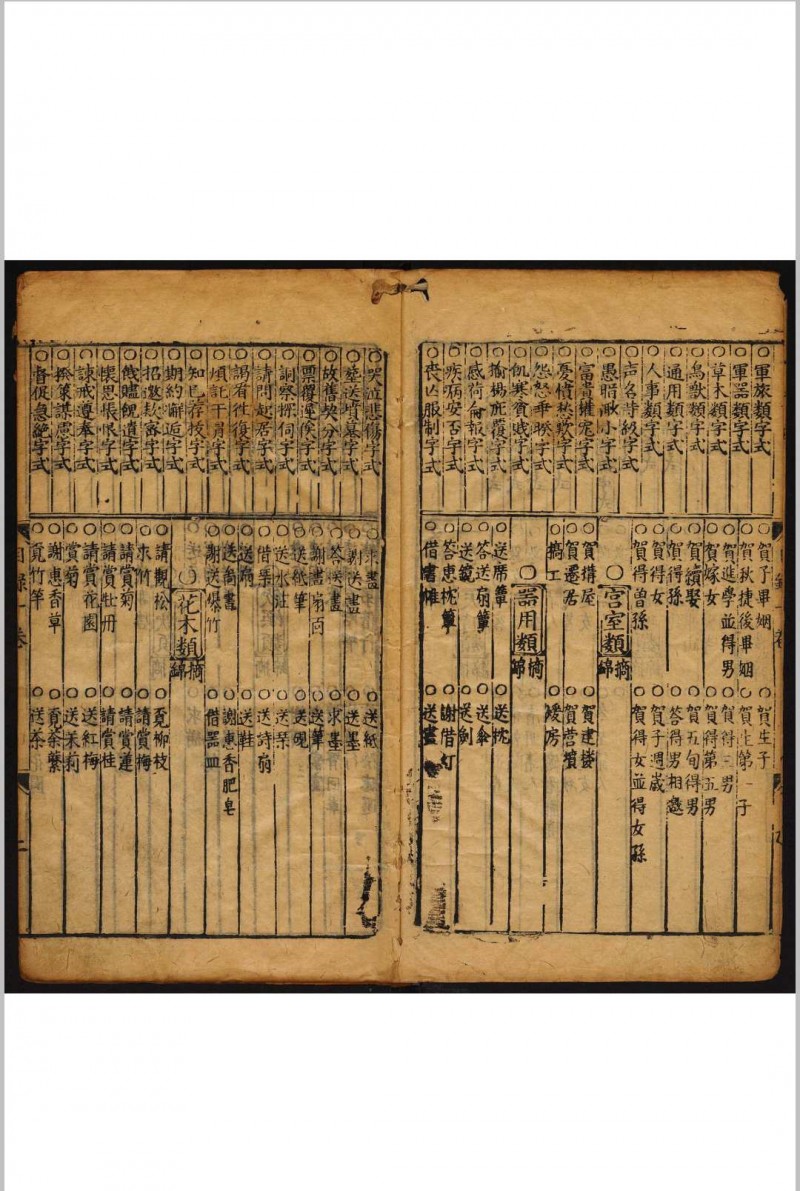 ○軍旅類字式
○軍器類字式
○草木類字式
○鳥獸類字式
○通用類字式
○人事類字式
○声名時級字式
○愚暗眇小字式
○富貴權寵字式
○憂憤愁歎字式
○怨怒乖暌字式
○飢寒貧賤字式
○揄楊庇覆字式
○感荷銜報字式
○疾病安否字式
○喪凶服制字式
○賀子畢姻
○賀生子
○賀秋捷後畢姻
○賀生第一子
○賀進學並得男
○賀得三男
○賀嫁女
○賀得第五男
○賀續娶
○賀五旬得男
○賀得孫
○答得男相慶
○賀得女
○賀子週歲
○賀得曽孫
○賀得女並得女孫
○宮室類
摘錦
○賀搆屋
○賀建楼
○賀遷居
○賀营墳
○摘工
○煖房
○器用類
摘錦
○送席簟
○送枕
○答送扇簟
○送傘
○送鏡
○送劍
○答恵枕簟
○謝借灯
○借書帷
○送畫
○哭泣悲傷字式
○葬送墳墓字式
○故舊契分字式
○票覆遲俟字式
○詗察探伺字式
○請問起居字式
○謁看往復字式
○煩託干冒字式
○知已荐拔字式
○期約邂逅字式
○招邀欵審字式
○餞贐餽遺字式
○懐思悵恨字式
○諌戒遵奉字式
○揆策謀慮字式
○督促急絶字式
○求畫
○送紙
○謝送畫
○送墨
○答送畫
○求墨
○謝書扇面
○送筆
○送紙筆
○送硯
○送水注
○送琴
○借琹
○送詩扇
○送鞋
○送喬畫
○謝恵香肥皂
○謝送爆竹
○借器皿
○花木類
摘錦
○請觀松
○覔柳枝
○求竹
○請賞梅
○請賞菊
○請賞蓮
○請賞牡丹
○請賞桂
○請賞花園
○送紅梅
○賞菊
○送茉莉
○謝惠香草
○覔荼蘩
○覔竹笋
○送茶
目錄一卷
二